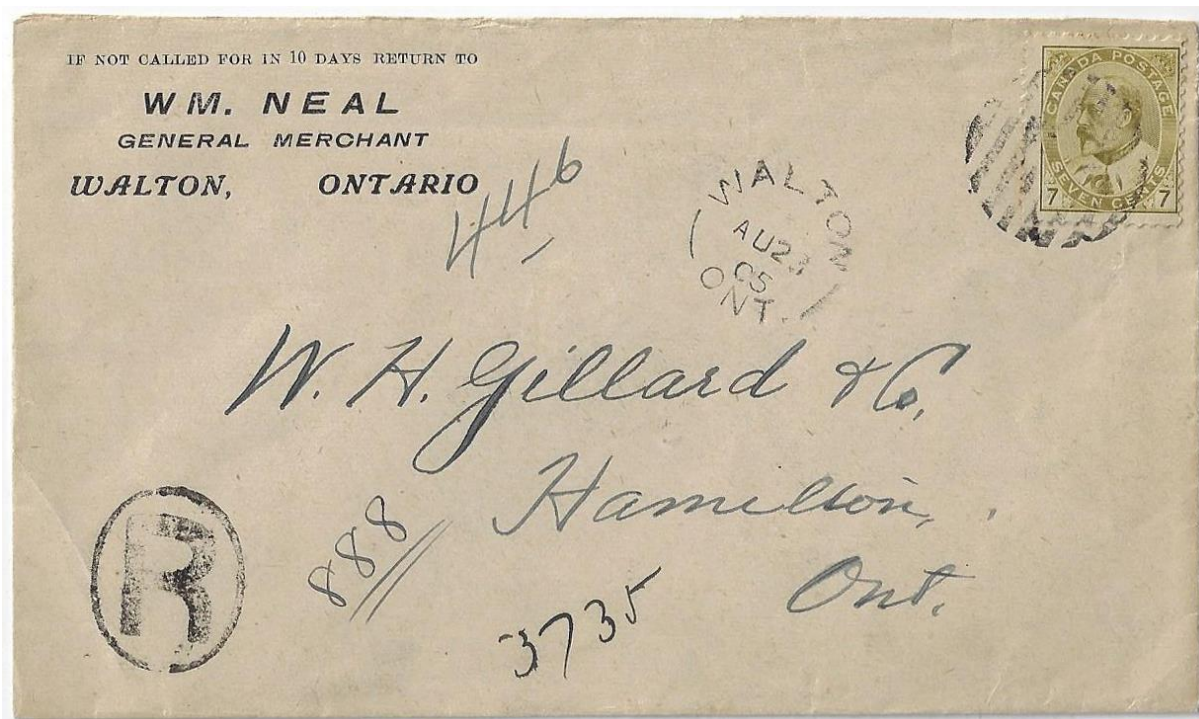 IF NOT CALLED FOR IN 10 DAYS RETURN TO
WM. NEAL
GENERAL MERCHANT
WALTON, ONTARIO
446
WALTON
AU 23
05
ONT.
CANADA POSTAGE
SEVEN CENTS
7 7
W. H. Gillard & Co.
Hamilton,
Ont.
R
888
3735